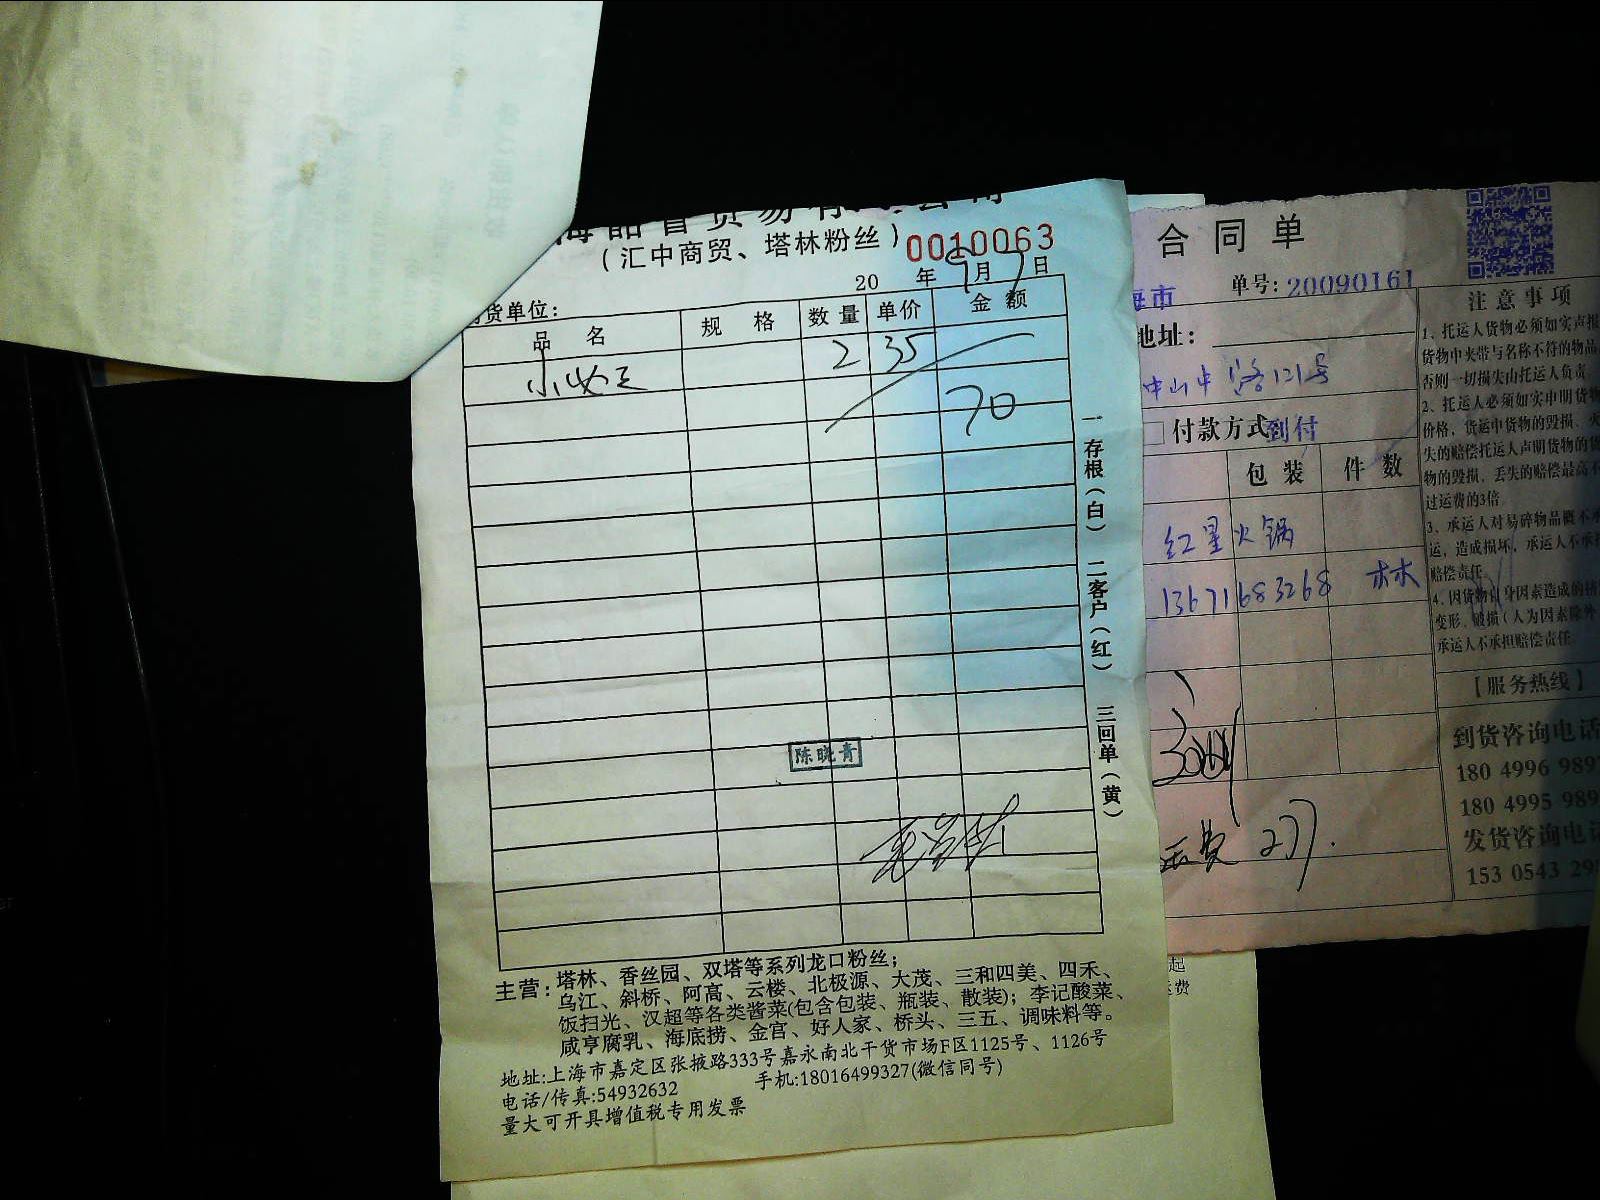 贸易有
（汇中商贸、塔林粉丝）
0010063
20 年 9月 7日
货单位:
品 名 规 格 数量 单价 金 额
2 35
70
一存根（白） 二客户（红） 三回单（黄）
陈晓青
主营: 塔林、香丝园、双塔等系列龙口粉丝；
乌江、斜桥、阿高、云楼、北极源、大茂、三和四美、四禾、
饭扫光、汉超等各类酱菜(包含包装、瓶装、散装)；李记酸菜、
咸亨腐乳、海底捞、金宫、好人家、桥头、三五、调味料等。
地址:上海市嘉定区张掖路333号嘉永南北干货市场F区1125号、1126号
电话/传真:54932632 手机:18016499327(微信同号)
量大可开具增值税专用发票
合同单
海市 单号: 20090161
地址:
中山中路121号
付款方式 到付
包装 件数
红星火锅
13671683268 林
运费 277.
注意事项
1、托运人货物必须如实声报
货物中夹带与名称不符的物品
否则一切损失由托运人负责
2、托运人必须如实申明货物
价格，货运中货物的毁损、灭
失的赔偿托运人声明货物的货
物的毁损，丢失的赔偿最高不
过运费的3倍
3、承运人对易碎物品概不承
运，造成损坏，承运人不承担
赔偿责任
4、因货物自身因素造成的
变形、破损（人为因素除外
承运人不承担赔偿责任
【服务热线】
到货咨询电话
180 4996 989
180 4995 989
发货咨询电话
153 0543 29
起
运费